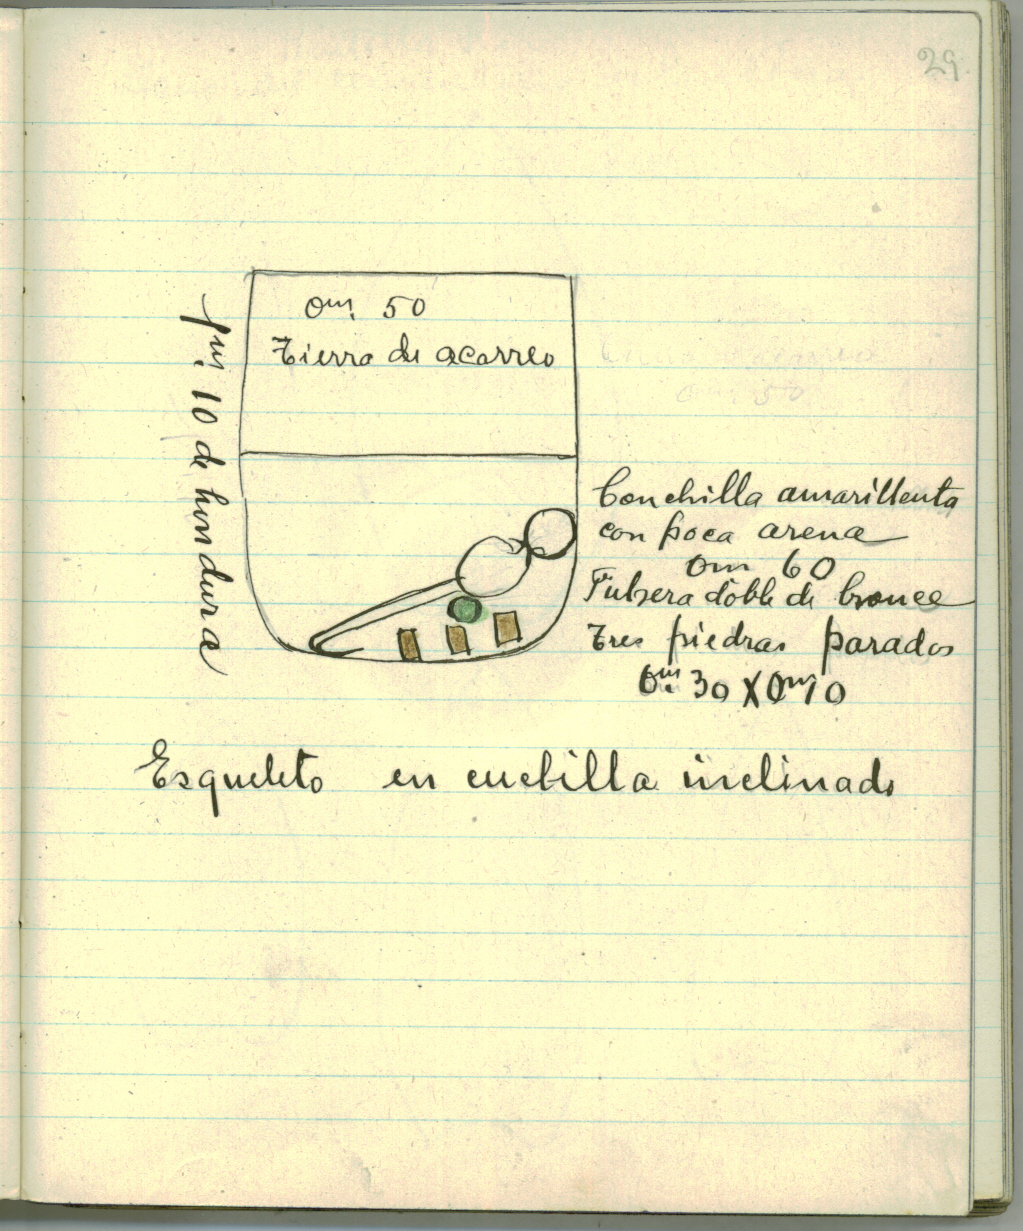 29.
0m. 50
Tierra de acarreo
1m. 10 de hondura
Conchilla amarillenta
con poca arena
0m 60
Pulsera doble de bronce
Tres piedras parados
0m. 30 X 0m 10
Esqueleto en cuclilla inclinado